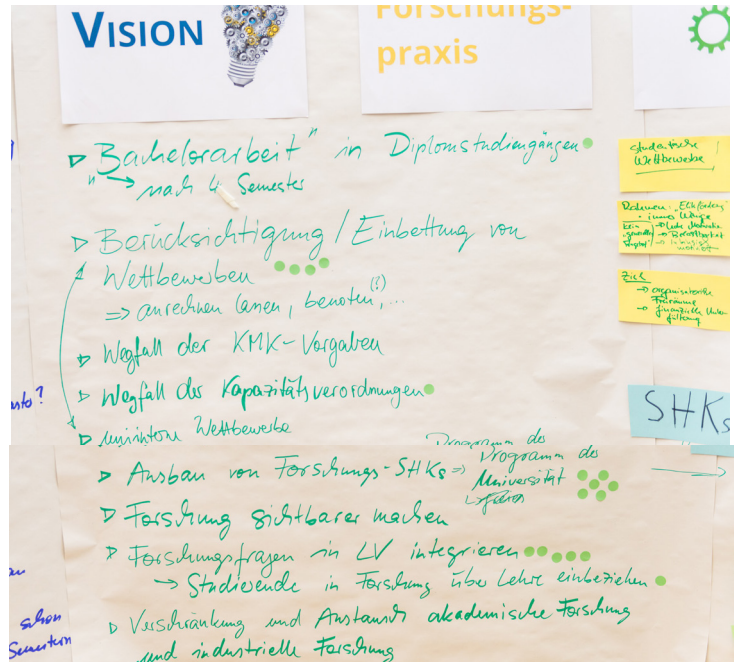 VISION
Forschungs-
praxis
▷ "Bachelorarbeit" in Diplomstudiengängen
→ nach 4 Semester
▷ Berücksichtigung / Einbettung von
Wettbewerben
=> anrechnen lassen, benoten, (?) ...
▷ Wegfall der KMK-Vorgaben
▷ Wegfall der Kapazitätsverordnungen
▷ uniinterne Wettbewerbe
▷ Ausbau von Forschungs-SHKs => Programm der
Universität
▷ Forschung sichtbarer machen
▷ Forschungsfragen in LV integrieren
→ Studierende in Forschung über Lehre einbeziehen
▷ Verschränkung und Austausch akademische Forschung
und industrielle Forschung
studentische
Wettbewerbe !
Rahmen:
Ziel
→ organisatorische
Freiräume
→ finanzielle
SHKs
schon
Semestern